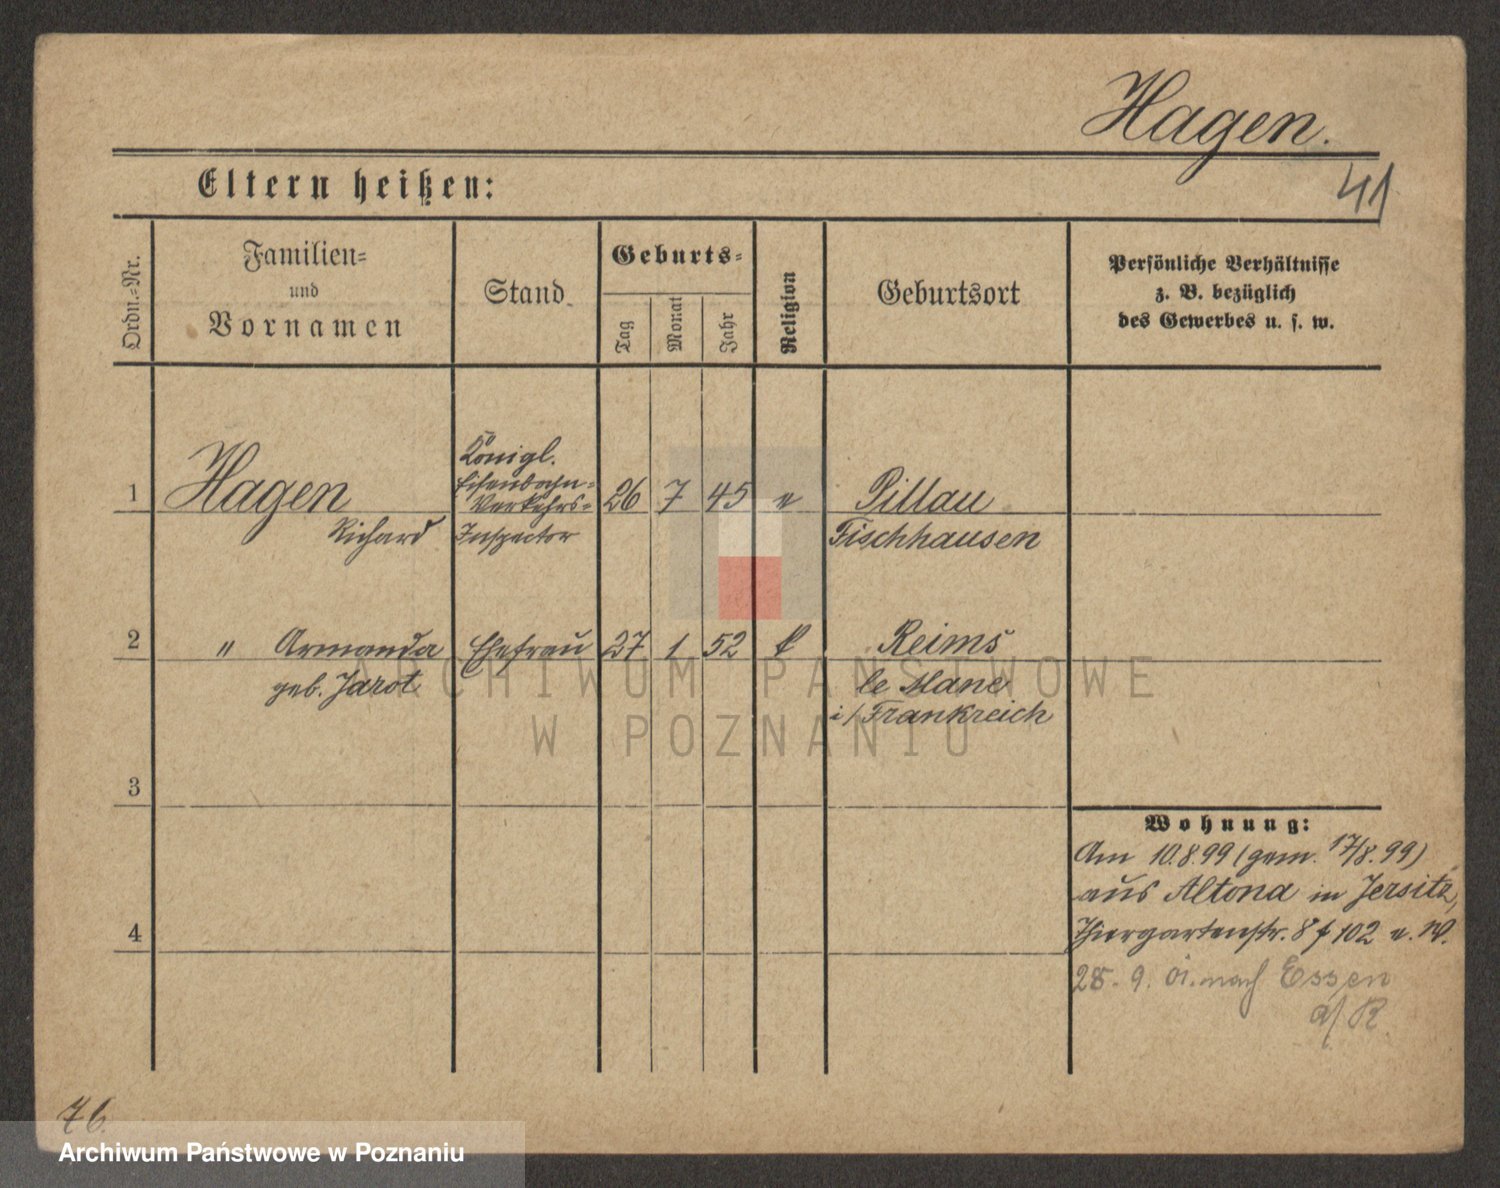 Hagen.
41
Eltern heißen:
Ordn.-Nr.
Familien-
und
Vornamen
Stand.
Geburts-
Tag
Monat
Jahr
Religion
Geburtsort
Persönliche Verhältnisse
z. B. bezüglich
des Gewerbes u. s. w.
1
Hagen
Richard
Königl.
Eisenbahn-
Verkehrs-
Inspector
26 7 45 e
Pillau
Fischhausen
2
" Armanda
geb. Jarot
Ehefrau
27 1 52 k
Reims
le Mane
i/Frankreich
3
4
Wohnung:
Am 10.8.99 (gem. 17/8.99)
aus Altona in Jersitz,
Thiergartenstr. 8 f 102 e. W.
28. 9. 01. nach Essen
a/R.
76.
ARCHIWUM PAŃSTWOWE
W POZNANIU
Archiwum Państwowe w Poznaniu